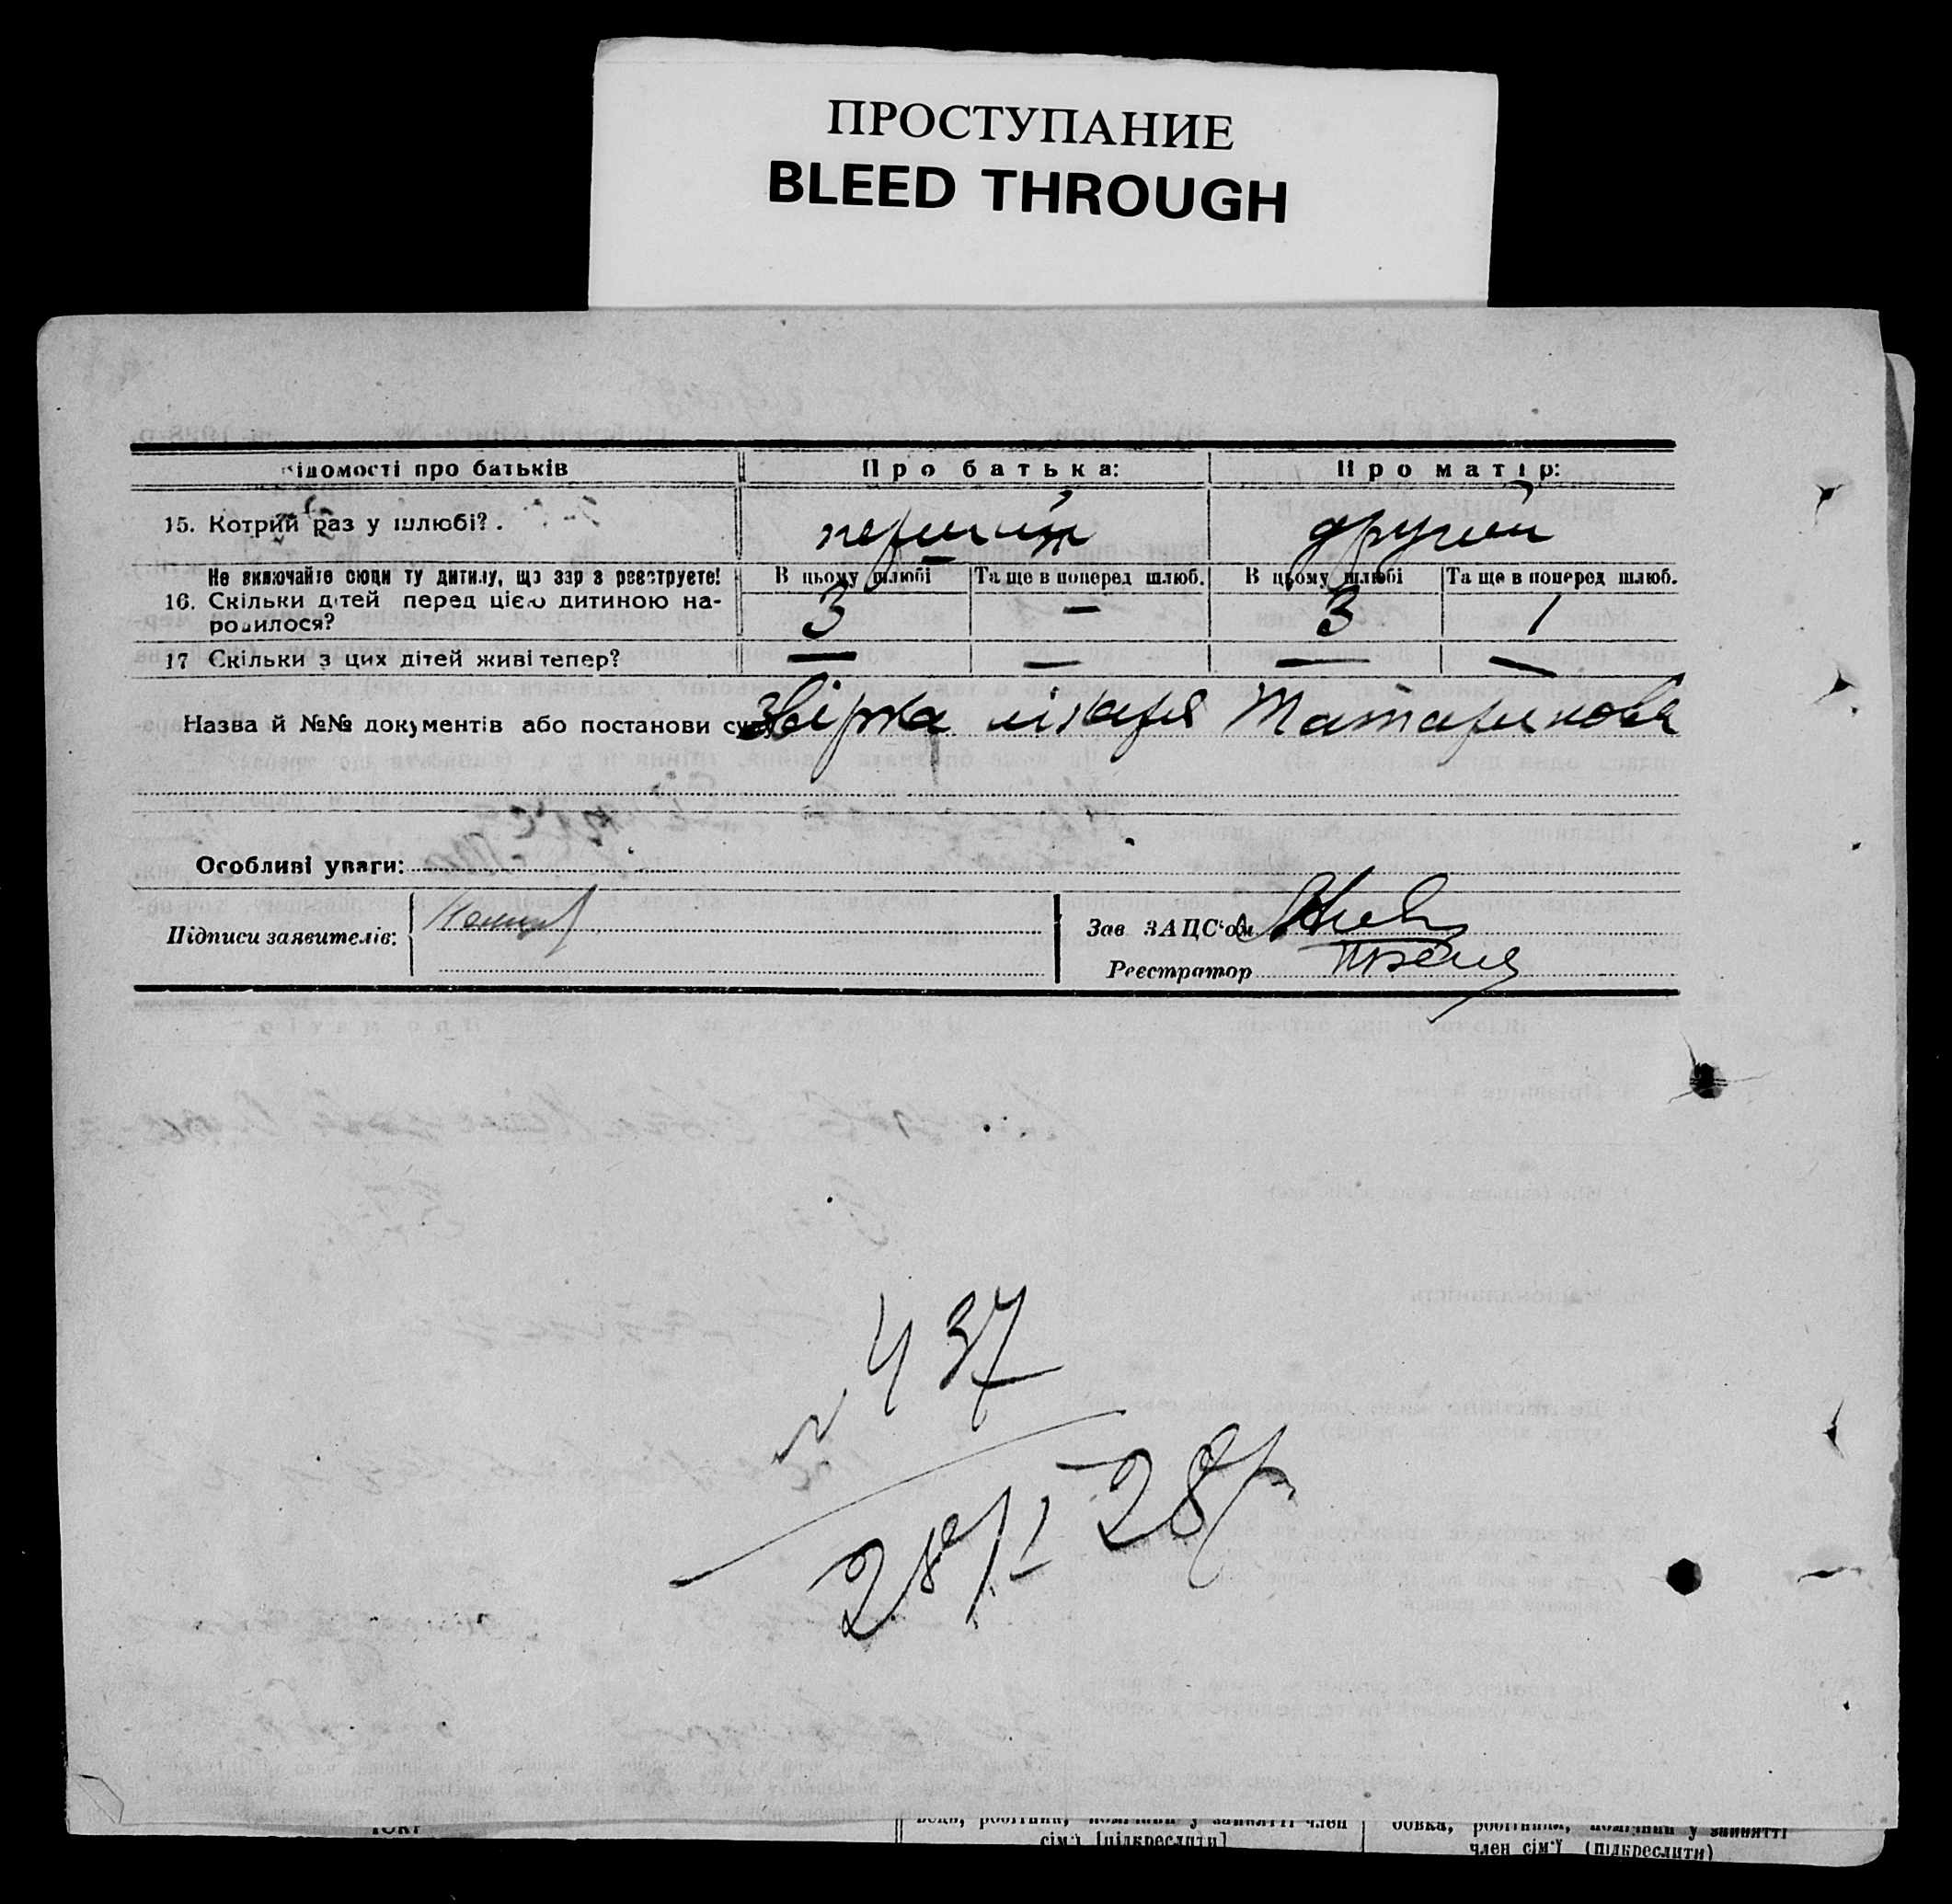 ПРОСТУПАНИЕ
BLEED THROUGH
Відомості про батьків Про батька: Про матір:
15. Котрий раз у шлюбі? . перший другий
Не включайте сюди ту дитину, що зараз реєструєте! В цьому шлюбі Та ще в поперед шлюб. В цьому шлюбі Та ще в поперед шлюб.
16. Скільки дітей перед цією дитиною на-
родилося? 3 — 3 1
17 Скільки з цих дітей живі тепер? — — — —
Назва й №№ документів або постанови суду Звірка лікаря Татаринова
Особливі уваги:
Підписи заявителів:
Зав ЗАЦС'ом
Реєстратор
N 437
28/I 28 р
член
сім'ї [підкреслити]
у занятті
член сім'ї (підкреслити)